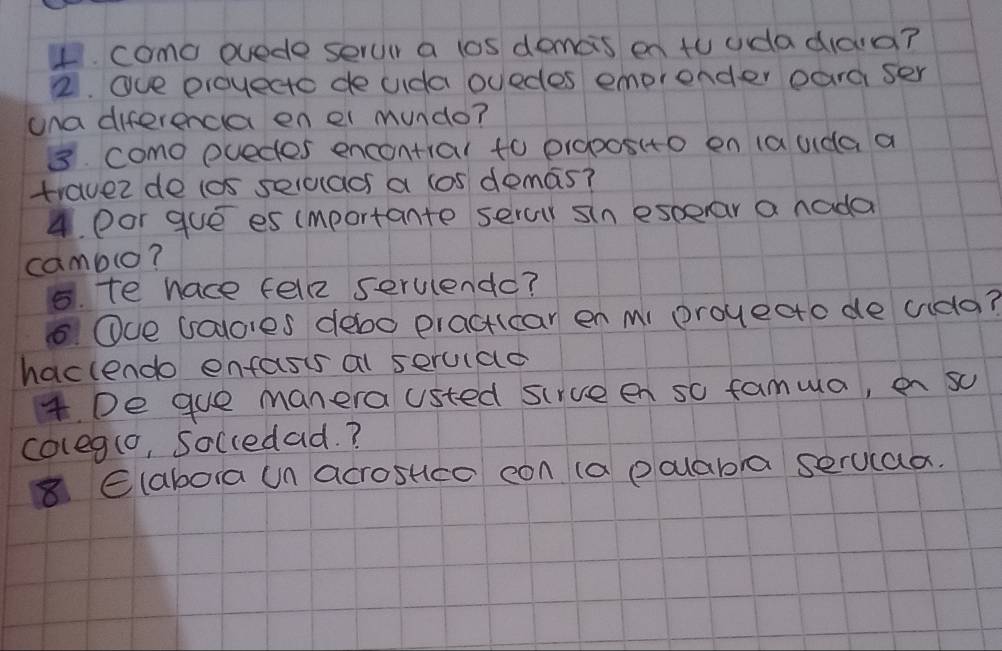 1. Como puede servir a los demás en tu vida diaria?
2. Que proyecto de vida puedes emprender para ser
una diferencia en el mundo?
3. Como puedes encontrar tu proposito en la vida a
travez de los servicios a los demás?
4. Por qué es importante servir sin esperar a nada
cambio?
5. te hace feliz serviendo?
6. Que valores debo practicar en mi proyecto de vida?
haciendo enfasis al servicio
7. De que manera usted sirve en su familia, en su
colegio, sociedad.?
8 Elabora un acrostico con la palabra servicio.